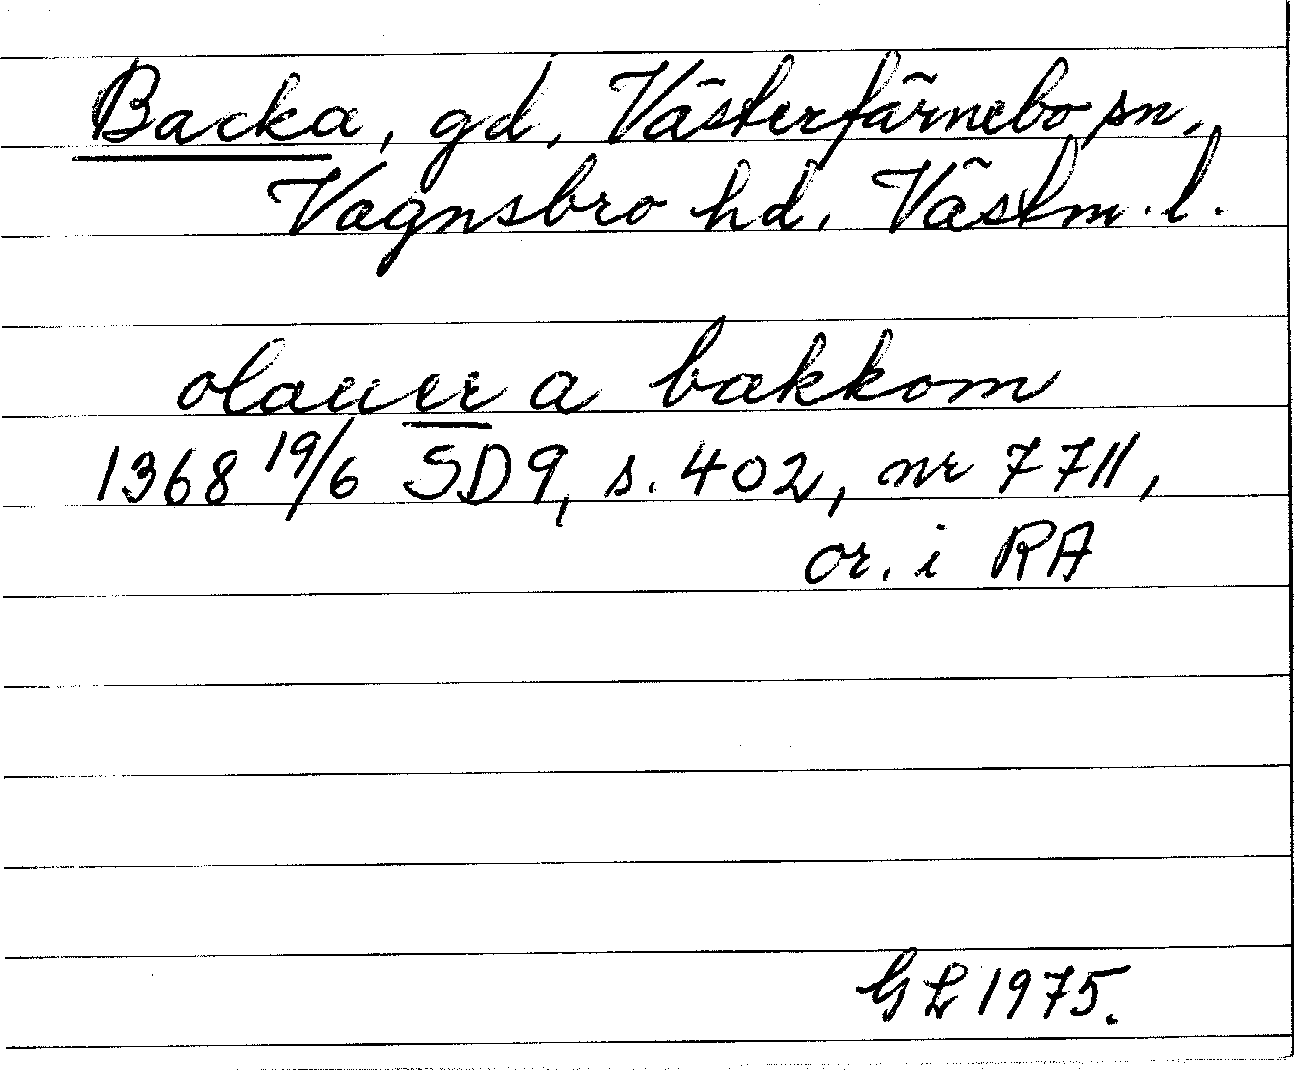 Backa, gd, Västerfärnebo sn,
Vagnsbro hd. Västm. l.
olauer a bakkom
1368 19/6 SD9, s. 402, nr 7711,
or. i RA
GL 1975.